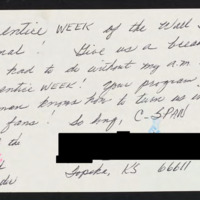 entire WEEK of the Wall S
nal! Give us a brea
had to do without my a.m.
entire WEEK! Your program
man knows how to turn us in
fans! So long, C-SPAN
the
Topeka, KS 66611